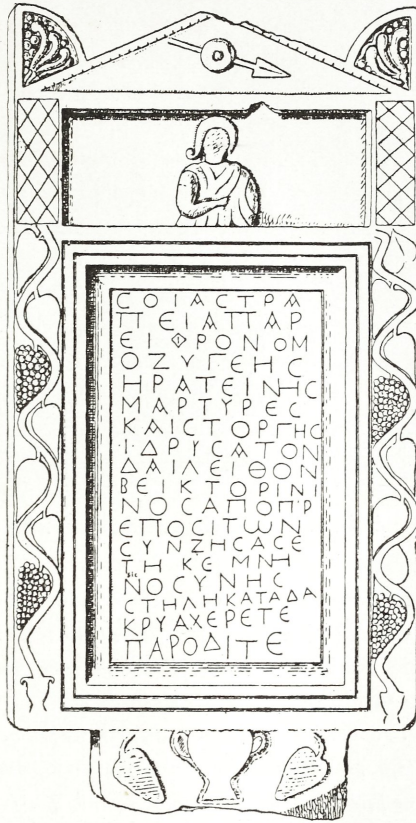 ϹΟΙΑϹΤΡΑ
ΠΕΙΑΠΑΡ
ΕΙΦΡΟΝΟΜ
ΟΖΥΓΕΗϹ
ΗΡΑΤΕΙΝΗϹ
ΜΑΡΤΥΡΕϹ
ΚΑΙϹΤΟΡΓΗϹ
·Ι·ΔΡΥϹΑΤΟΝ
ΔΑΙΛΕΙΘΟΝ
ΒΕΙΚΤΟΡΙΝΙ
ΝΟϹΑΠΟΠΡ
ΕΠΟϹΙΤΩΝ
ϹΥΝΖΗϹΑϹΕ
ΤΗ ΚΕ ΜΝΗ
sic
ΝΟϹΥΝΗϹ
ϹΤΗΛΗΚΑΤΑΔΑ
ΚΡΥΑΧΕΡΕΤΕ
ΠΑΡΟΔΙΤΕ